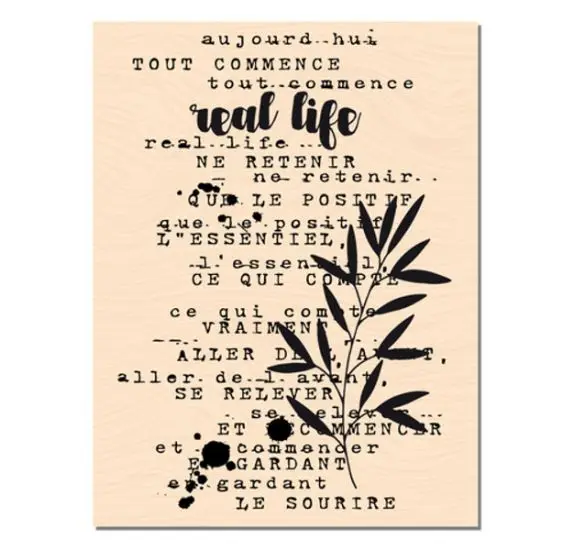 aujourd hui
TOUT COMMENCE
tout commence
real life
real life
NE RETENIR
ne retenir
QUE LE POSITIF
que le positif
L"ESSENTIEL,
l'essentiel,
CE QUI COMPTE
ce qui compte
VRAIMENT
ALLER DE L'AVANT,
aller de l'avant,
SE RELEVER
se relever
ET RECOMMENCER
et recommencer
EN GARDANT
en gardant
LE SOURIRE